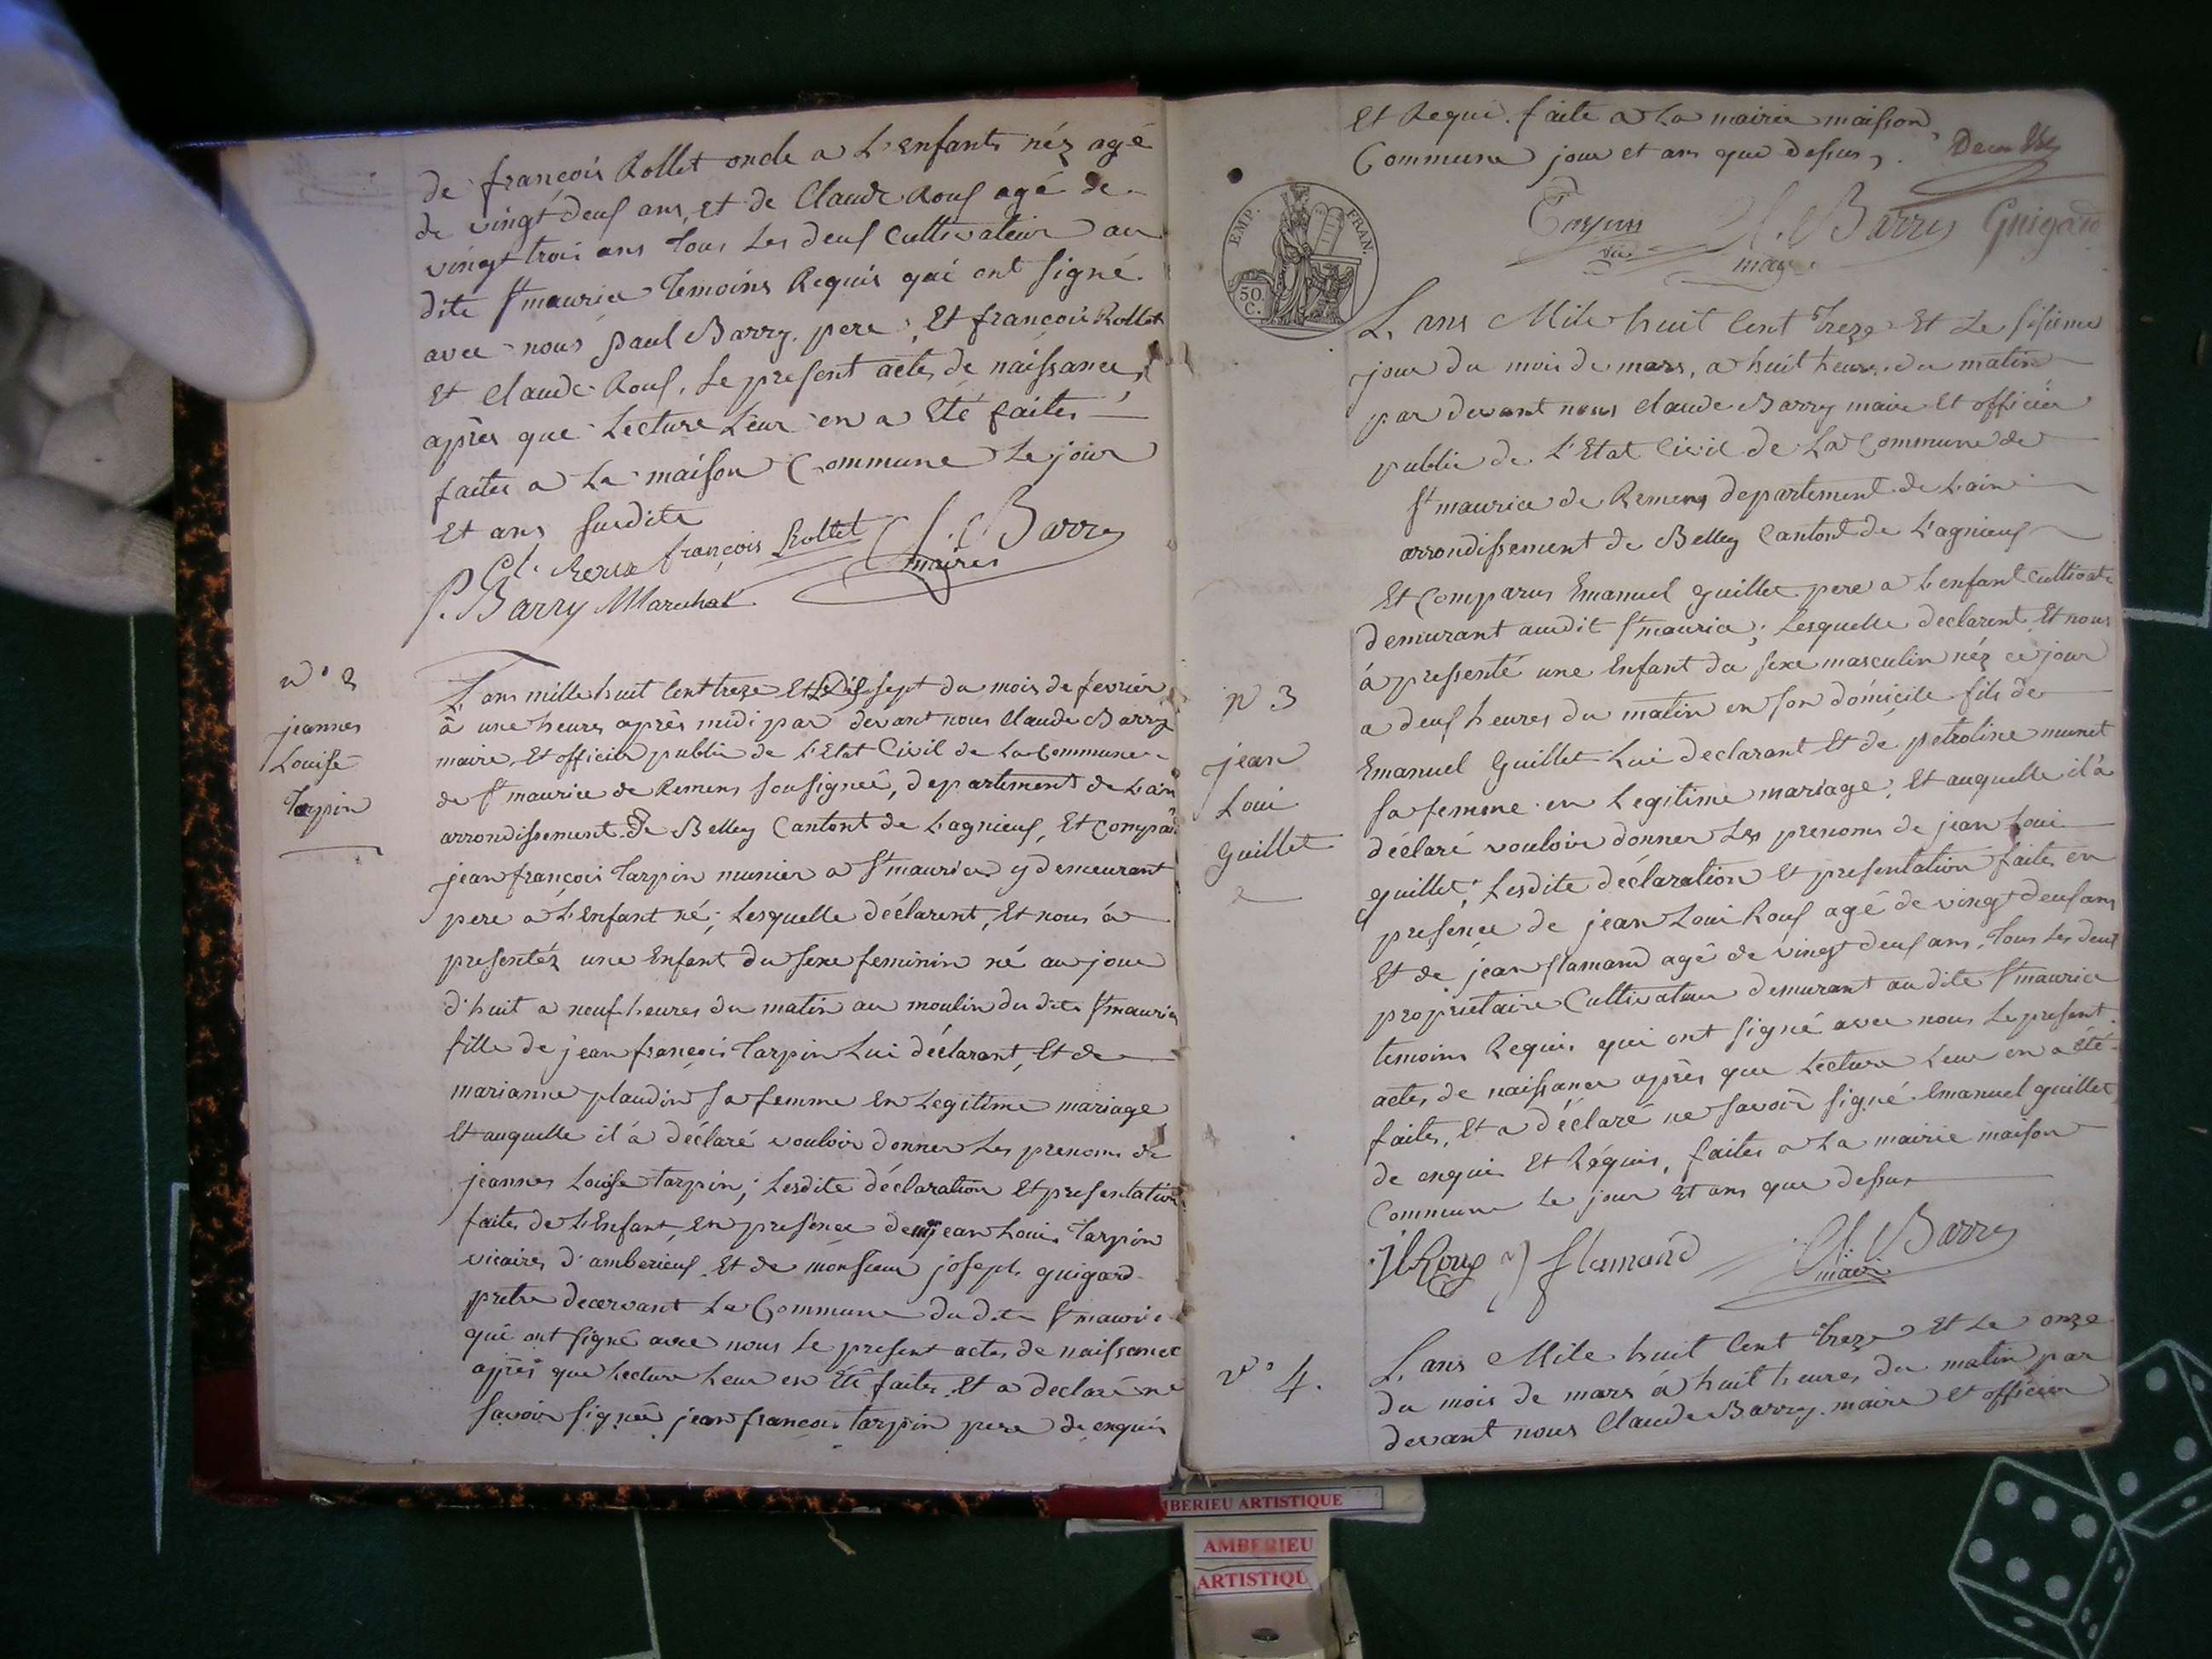 de françois Rollet oncle a L'enfants néz agé
de vingt deux ans, et de Claude Roux agé de
vingt trois ans tous Les deux Cultivateur au
dite St maurice temoins Requis qui ont signé
avec nous paul Barry. pere, Et françois Rollet
Et Claude Roux. Le present actes de naissance,
après que Lecture Leur en a Eté faites
faites a La maison Commune Le jour
Et ans susdite
françois Rollet Cl. Barry
maires
P. Barry Marechal
n° 2
jeannes
Louise
Tarpin
L'ans mille huit Cent treze Et Le Dix sept du mois de fevrier
à une heures après midi par devant nous Claude Barry
maire, Et officier public de L'Etat Civil de La Commune
de St maurice de Remens sousigneé, departement de L'ain
arrondissement De Belley Cantont de Lagnieux, Et Compa
jean françois tarpin munier a St maurice y demeurant
pere a L'Enfant né; Lesquelle déclarent, Et nous à
presentéz une Enfant du sexe feminin né au jour
d'huit a neuf heures du matin au moulin du dite St maurice
fille de jean françois tarpin Lui déclarant, Et de
marianne plaudin sa femme en Legitime mariage
Et auquelle il'a déclaré vouloir donner Les prenoms de
jeannes Louise tarpin; Lesdite déclaration Et presentation
faites de L'Enfant, en presence de jean Louis Tarpin
vicaires d'amberieux, Et de monsieur joseph guigard
pretre decervant La Commune du dite St maurice
qui ont signé avec nous Le present actes de naissance
après que Lecture Leur en Eté faites Et a declaré ne
savoir signeé jean francois tarpin pere de enquis
Et Requi. faite a La mairie maison
Commune jour et ans que dessus,
Tarpin Cl. Barry Guigard
vic. maire
EMP. FRAN.
50.
C.
L'ans Mile huit Cent treze Et Le sisieme
jour du mois de mars, a huit heures du matin
par devant nous Claude Barry maire Et officier
public de L'Etat Civil de La Commune de
St maurice de Remens departement de L'ain
arrondissement de Belley Cantont de L'agnieux
Et Comparus Emanuel guillet pere a L'enfant Cultivat
demurant audit St maurice; Lesquelle declarent Et nous
à pressenté une Enfant du sexe masculin néz ce jour
a deux heures du matin en son domicile fils de
Emanuel Guillet Lui declarant Et de petroline munet
sa femme en Legitime mariage; Et auquelle il'a
déclaré vouloir donner Les prenoms de jean Loui
guillet; Lesdite déclaration Et presentation faites en
presence de jean Loui Roux agé de vingt deux ans
Et de jean flamand agé de vingt deux ans, tous Les deux
proprietaire Cultivateur demurant au dite St maurice
temoins Requis qui ont signé avec nous Le present
actes de naissance après que Lecture Leur en a été
faites, Et a déclaré ne savoir signé Emanuel guillet
de enquis Et Réquis, faites a La mairie maison
Commune Le jour Et ans que dessus
n° 3
jean
Loui
Guillet
jl Roux j flamand Cl. Barry
maire
n° 4.
L'ans Mile huit Cent treze Et Le onze
du mois de mars à huit heures du matin par
devant nous Claude Barry. maire Et officier
AMBERIEU ARTISTIQUE
AMBERIEU
ARTISTIQU